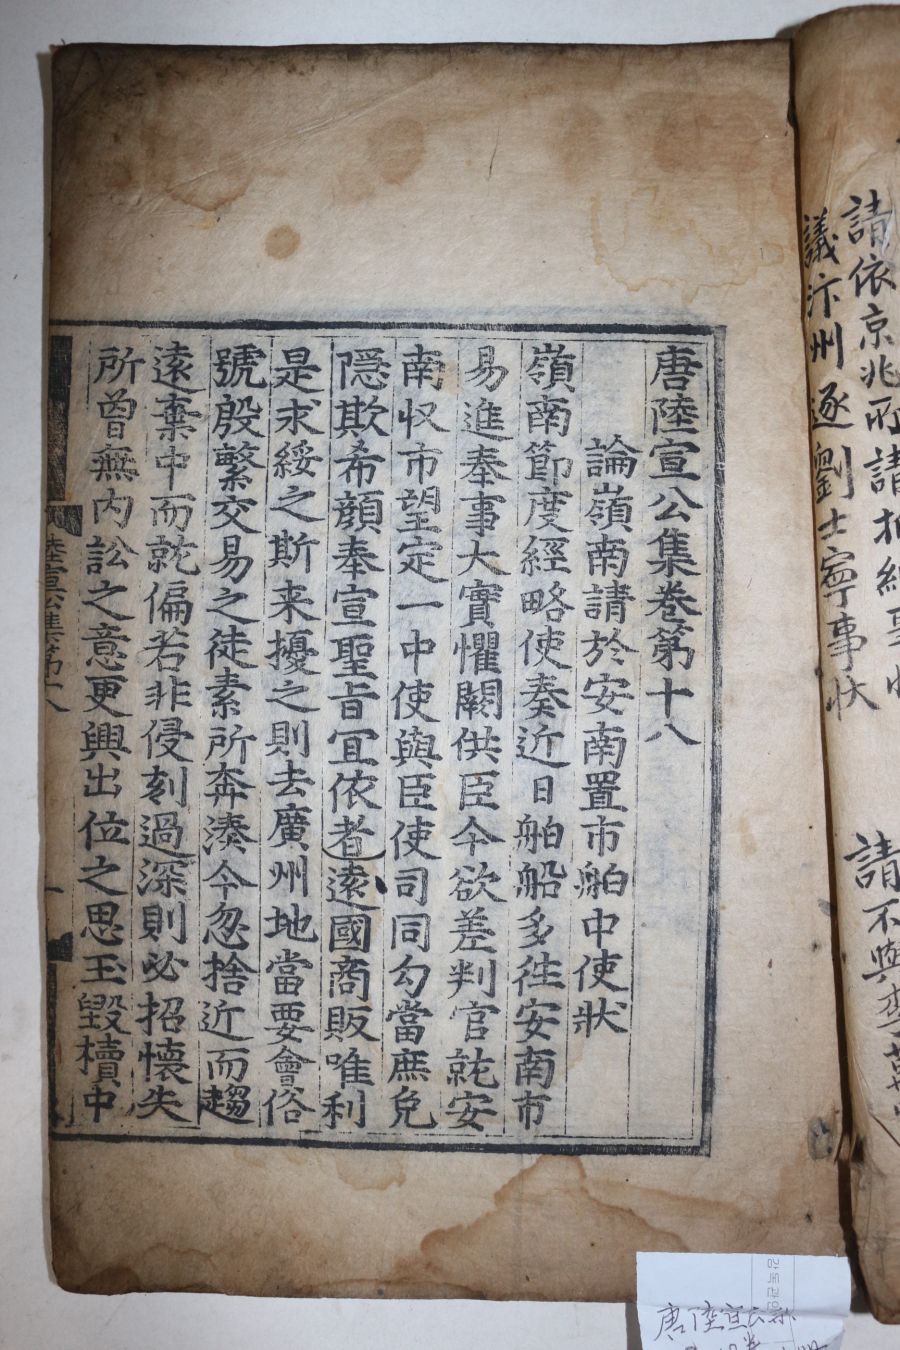 請依京兆所請折納事狀
請不與李萬
議汴州逐劉士寧事狀
唐陸宣公集卷第十八
論嶺南請於安南置市舶中使狀
嶺南節度經略使奏近日舶船多徃安南市
易進奉事大實懼闕供臣今欲差判官就安
南収市望定一中使與臣使司同勾當庶免
隱欺希顔奉宣聖旨冝依者遠國商販唯利
是求綏之斯来擾之則去廣州地當要會俗
號殷繁交易之徒素所奔湊今忽捨近而趨
遠棄中而就偏若非侵刻過深則必招懷失
所曾無内訟之意更興出位之思玉毀櫝中
陸宣公集第十八
一
唐陸宣公